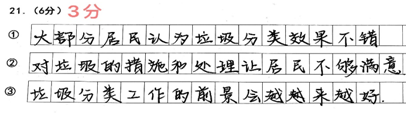 21.（6分）3分
① 大部分居民认为垃圾分类效果不错
② 对垃圾的措施和处理让居民不够满意
③ 垃圾分类工作的前景会越越来越好.